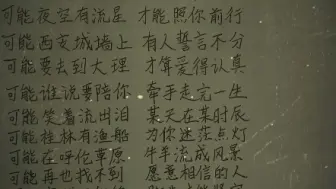 可能夜空有流星 才能照你前行
可能西安城墙上 有人誓言不分
可能要去到大理 才算爱得认真
可能谁说要陪你 牵手走完一生
可能笑着流出泪 某天在某时辰
可能桂林有渔船 为你迷茫点灯
可能在呼伦草原 牛羊流成风景
可能再也找不到 愿意相信的人